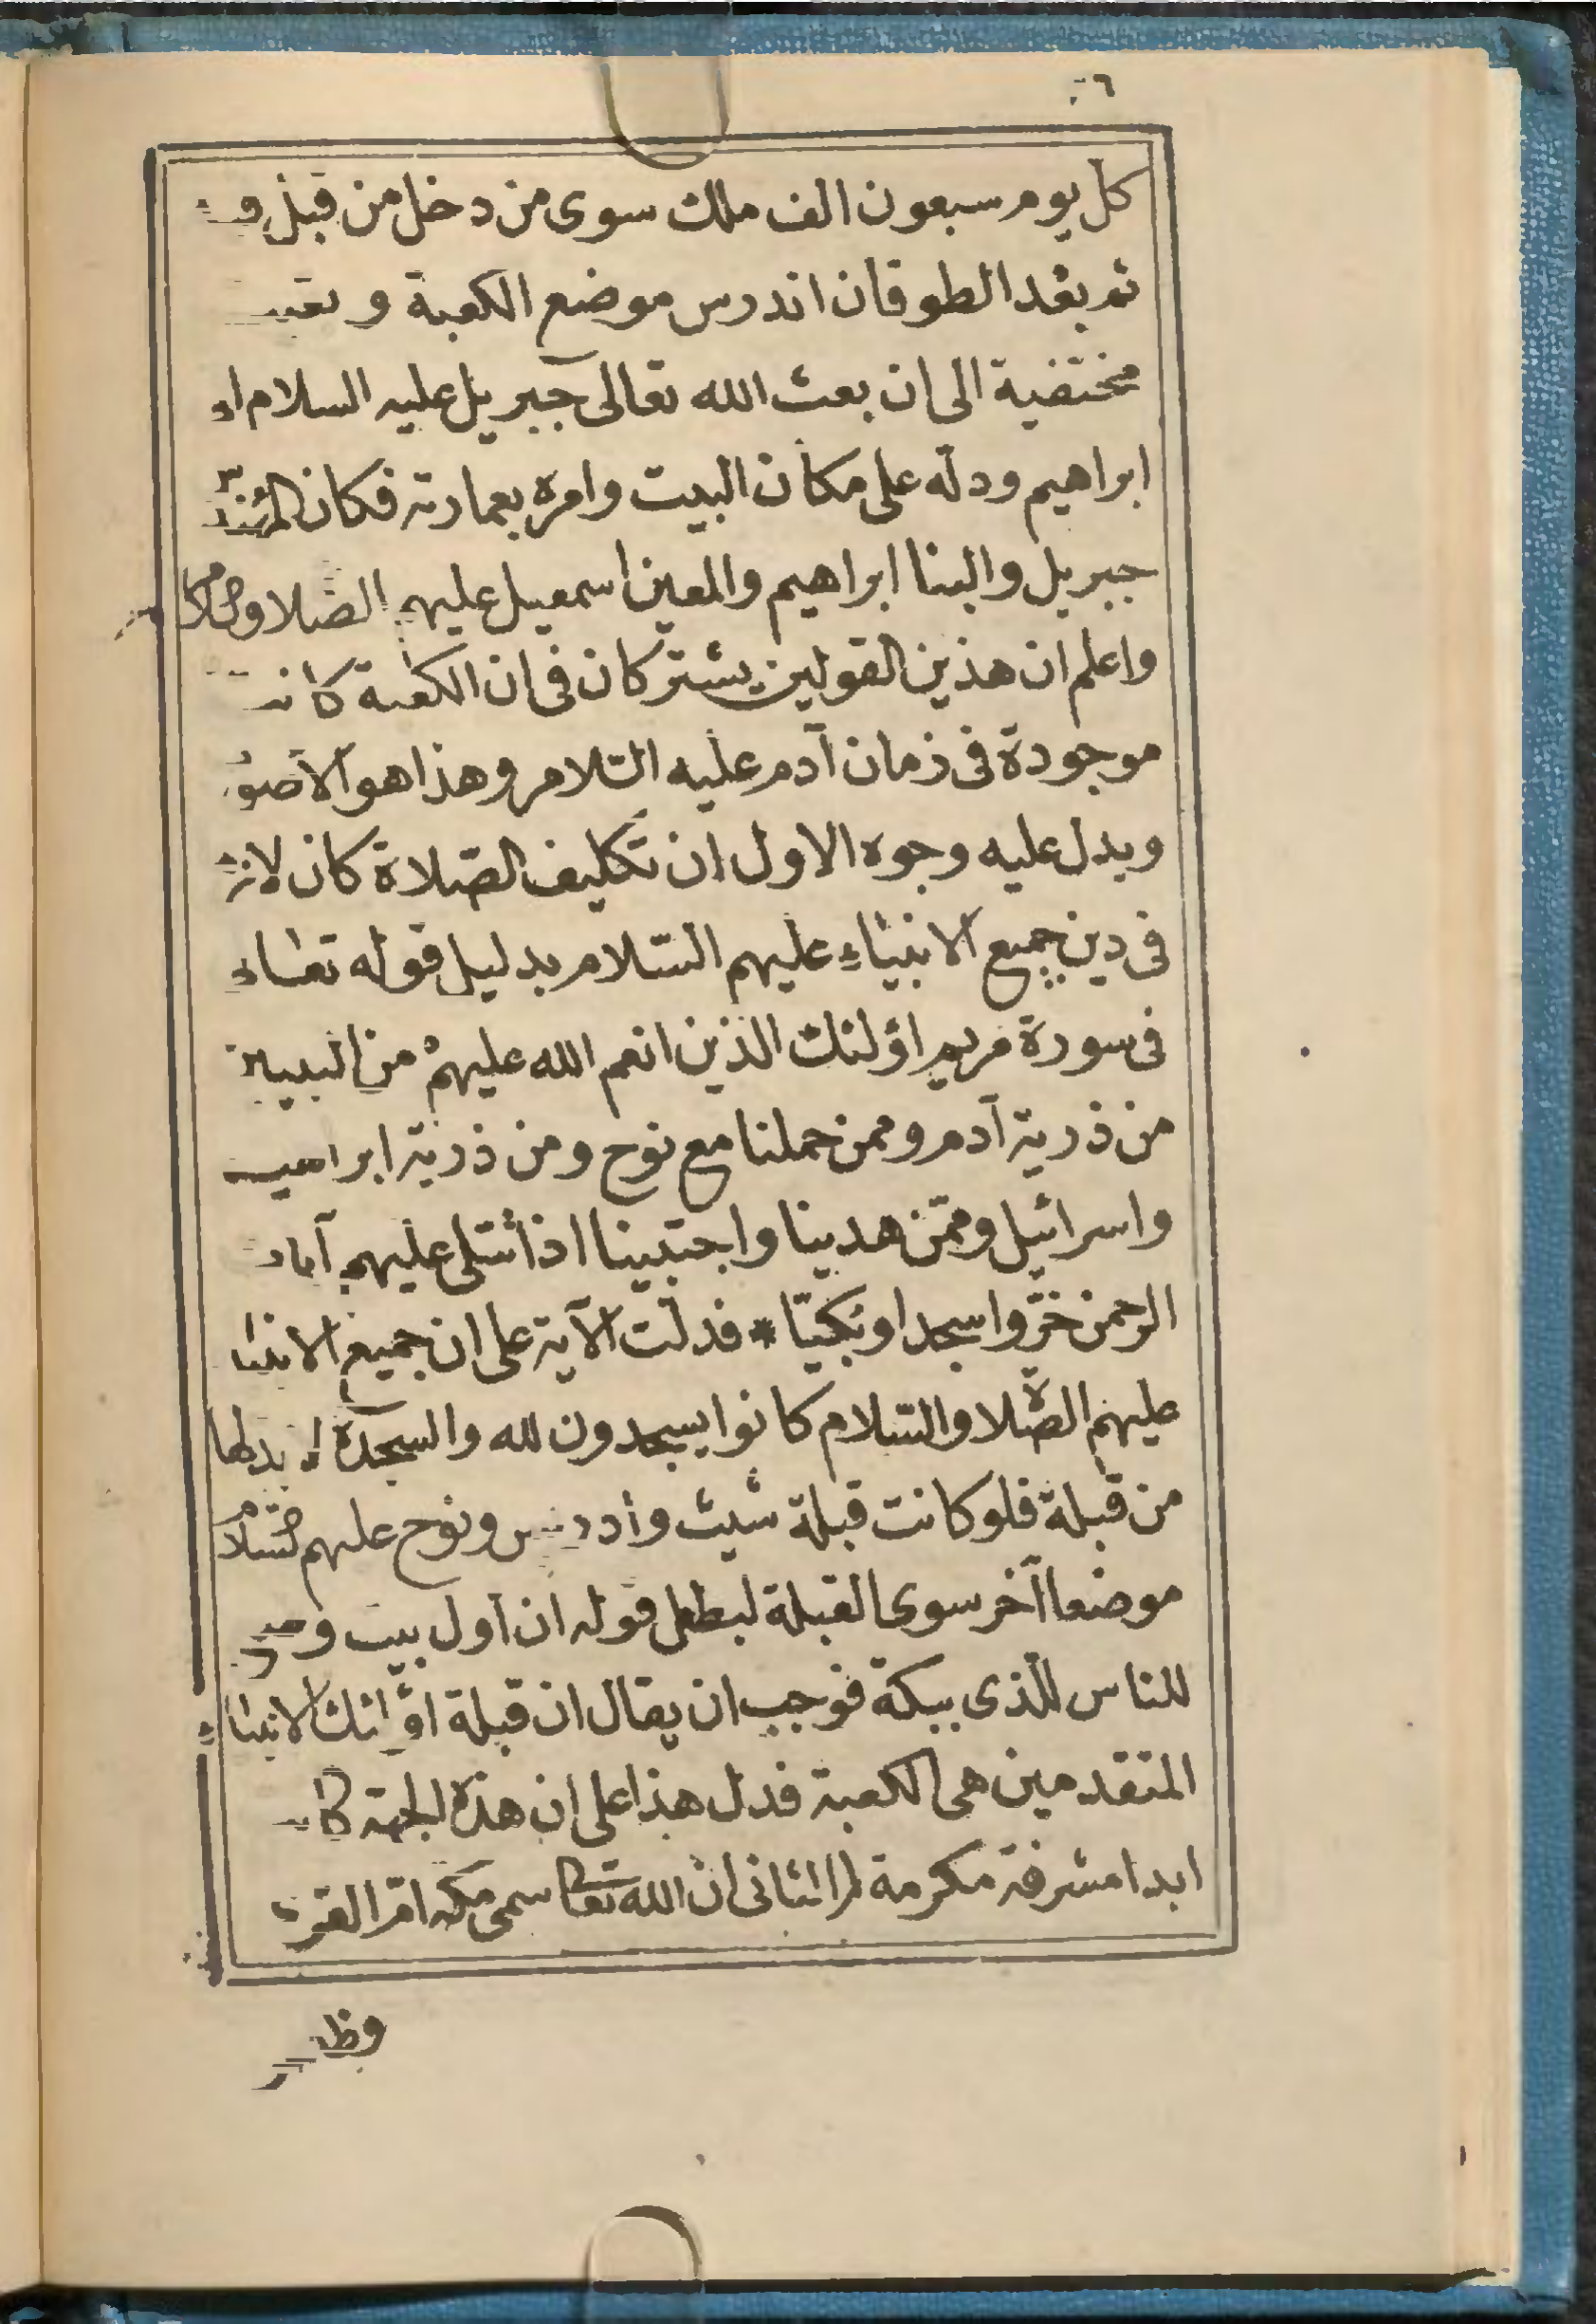 ٦
كل يوم سبعون الف ملك سوى من دخل من قبل و
ثم بعد الطوفان اندرس موضع الكعبة و
مختفية الى ان بعث الله تعالى جبريل عليه السلام
ابراهيم ودله على مكان البيت وامره بعمارته فكان
جبريل والبنا ابراهيم والمعين اسمعيل عليهم الصلاة و
واعلم ان هذين القولين يشتركان فى ان الكعبة كانت
موجودة فى زمان آدم عليه السلام وهذا هو الاصو
ويدل عليه وجوه الاول ان تكليف الصلاة كان
فى دين جميع الانبياء عليهم السلام بدليل قوله
فى سورة مريم اؤلئك الذين انعم الله عليهم من النبيين
من ذرية آدم وممن حملنا مع نوح ومن ذرية ابراهيم
واسرائيل وممن هدينا واجتبينا اذا تتلى عليهم آيات
الرحمن خرّوا سجدا وبكيّا * فدلت الآية على ان جميع الانبيا
عليهم الصلاة والسلام كانوا يسجدون لله والسجدة لا بد لها
من قبلة فلو كانت قبلة شيث وأدريس ونوح عليهم
موضعا آخر سوى القبلة لبطل قوله ان أول بيت وضع
للناس للذى ببكة فوجب ان يقال ان قبلة اؤلئك الانبياء
المتقدمين هى الكعبة فدل هذا على ان هذه الجهة كانت
ابدا مشرفة مكرمة الثانى ان الله تعا سمى مكة امّ القرى